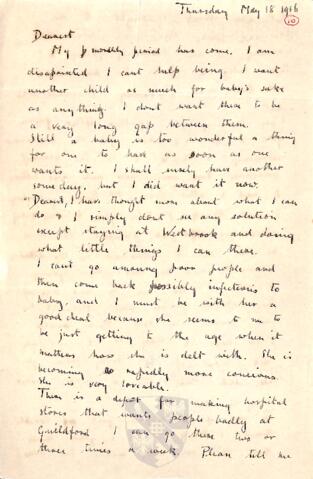 Thursday May 18 1916
(10)
Dearest
My monthly period has come. I am
disapointed I cant help being. I want
another child as much for baby's sake
as anything. I dont want there to be
a very long gap between them.
Still a baby is too wonderful a thing
for one to have as soon as one
wants it. I shall surely have another
some day, but I did want it now.
Dearest, I have thought more about what I can
do & I simply dont see any solution
except staying at Westbrook and doing
what little things I can there.
I cant go among poor people and
then come back possibly infectious to
baby, and I must be with her a
good deal because she seems to me to
be just getting to the age when it
matters how she is delt with. She is
becoming so rapidly more concious.
She is very loveable.
There is a depot for making hospital
stores that wants people badly at
Guildford I can go there two or
three times a week. Please tell me